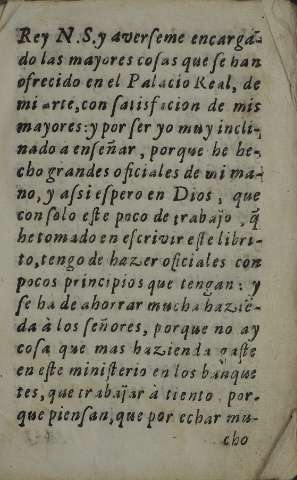 Rey N.S. y averseme encarga-
do las mayores cosas que se han
ofrecido en el Palacio Real, de
mi arte, con satisfacion de mis
mayores: y por ser yo muy incli-
nado a enseñar, porque he he-
cho grandes oficiales de mi ma-
no, y assi espero en Dios, que
con solo este poco de trabajo, q̃
he tomado en escrivir este libri-
to, tengo de hazer oficiales con
pocos principios que tengan: y
se ha de ahorrar mucha haziẽ-
da à los señores, porque no ay
cosa que mas hazienda gaste
en este ministerio en los banque
tes, que trabajar à tiento, por-
que piensan, que por echar mu-
cho